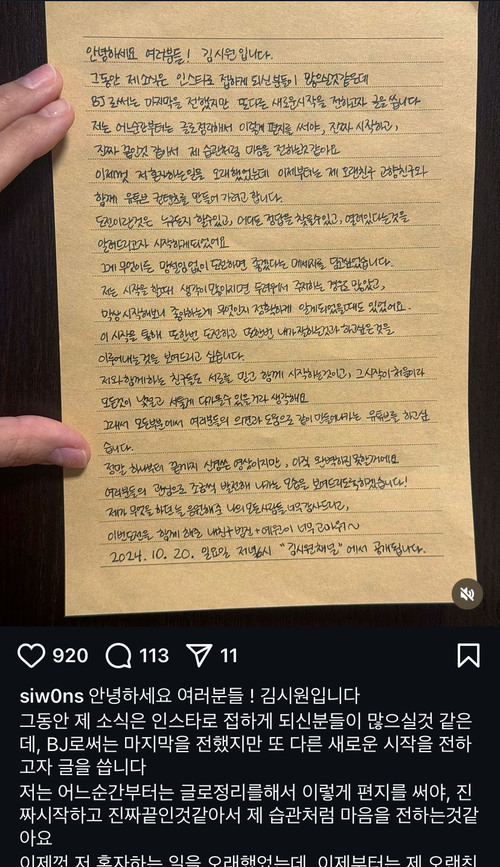 안녕하세요 여러분들! 김시원입니다.
그동안 제소식은 인스타로 접하게 되신분들이 많으실것같은데
BJ로써는 마지막을 전했지만 또다른 새로운시작을 전하고자 글을 씁니다
저는 어느순간부터는 글로정리해서 이렇게 편지를 써야, 진짜 시작하고,
진짜 끝인것 같아서 제 습관처럼 마음을 전하는것같아요
이제껏 저 혼자하는일을 오래했었는데 이제부터는 제 오랜친구 고향친구와
함께 유튜브 컨텐츠를 만들어 가려고 합니다.
도전이란것은 누구든지 할수있고, 어디든 정답을 찾을수있고, 열려있다는것을
알려드리고자 시작하게되었어요
그게 무엇이든 망설임없이 도전하면 좋겠다는 메세지를 담았습니다.
저는 시작을 할때 생각이 많아지면 두려워서 주저하는 경우도 많았고,
막상 시작해보니 좋아하는게 무엇인지 정확하게 알게되었을때도 있었어요.
이 시작을 통해 또한번 도전하고 또한번 내가 잘하는것과 하고싶은것을
이루어내는것을 보여드리고 싶습니다.
저와함께하는 친구들도 서로를 믿고 함께 시작하는것이고, 그시작이 처음이라
모든것이 낯설고 서툴게 다가올수 있을거라 생각해요
그래서 모든부분에서 여러분들의 의견과 도움으로 같이 만들어나가는 유튜브를 하고싶
습니다.
정말 하나부터 끝까지 신경쓴 영상이지만, 아직 완벽하진못할꺼에요
여러분들의 관심으로 조금씩 발전해 나가는 모습을 보여드리도록하겠습니다!
제가 무엇을 하던 늘 응원해준 나의모든사람들 너무감사드리고,
이번도전을 함께 해준 내친구 + 예원이 너무고마워~
2024. 10. 20. 일요일 저녁6시 "김시원채널" 에서 공개됩니다.
920 113 11
siw0ns 안녕하세요 여러분들 ! 김시원입니다
그동안 제 소식은 인스타로 접하게 되신분들이 많으실것 같은
데, BJ로써는 마지막을 전했지만 또 다른 새로운 시작을 전하
고자 글을 씁니다
저는 어느순간부터는 글로정리를해서 이렇게 편지를 써야, 진
짜시작하고 진짜끝인것같아서 제 습관처럼 마음을 전하는것같
아요
이제껏 저 혼자하는 일을 오래했었는데, 이제부터는 제 오랜친